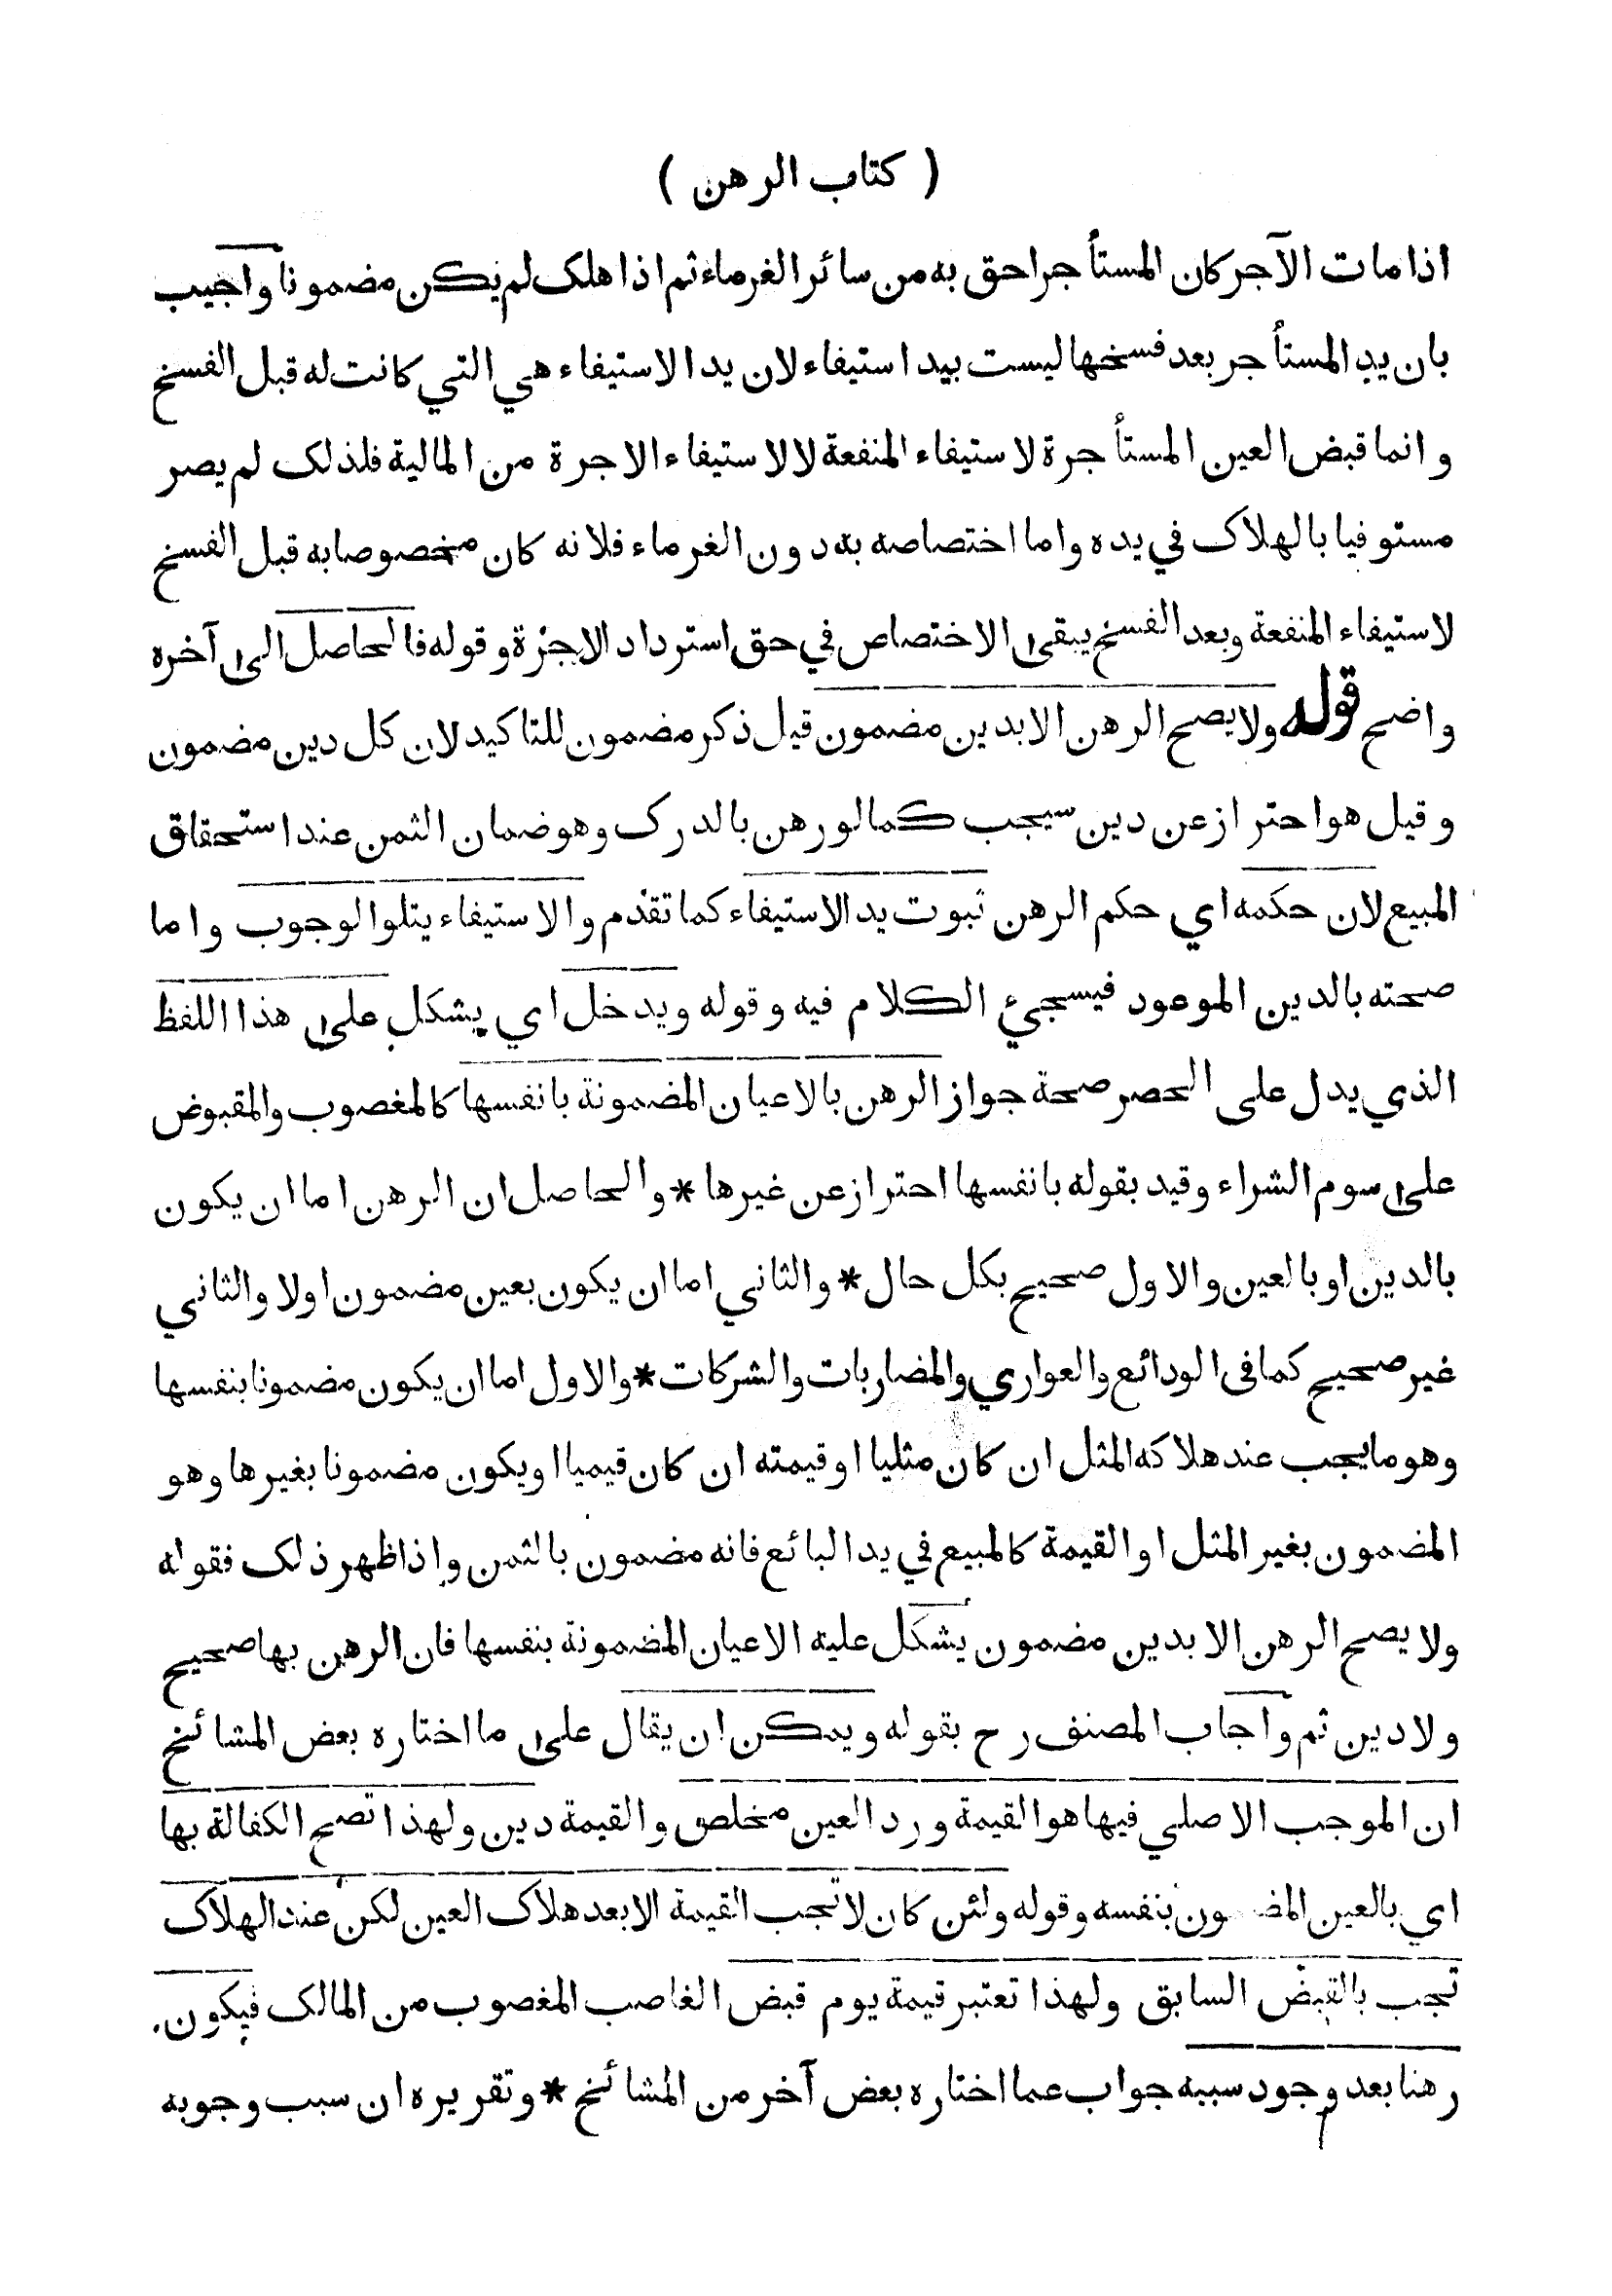 ( كتاب الرهن )
اذا مات الآجر كان المستأجر احق به من سائر الغرماء ثم اذا هلك لم يكن مضمونا واجيب
بان يد المستأجر بعد فسخها ليست بيد استيفاء لان يد الاستيفاء هي التي كانت له قبل الفسخ
وانما قبض العين المستأجرة لاستيفاء المنفعة لا لاستيفاء الاجرة من المالية فلذلك لم يصر
مستوفيا بالهلاك في يده واما اختصاصه به دون الغرماء فلانه كان مخصوصا به قبل الفسخ
لاستيفاء المنفعة وبعد الفسخ يبقى الاختصاص في حق استرداد الاجرة وقوله فالحاصل الى آخره
واضح قوله ولا يصح الرهن الا بدين مضمون قيل ذكر مضمون للتاكيد لان كل دين مضمون
وقيل هو احتراز عن دين سيجب كما لو رهن بالدرك وهو ضمان الثمن عند استحقاق
المبيع لان حكمه اي حكم الرهن ثبوت يد الاستيفاء كما تقدم والاستيفاء يتلو الوجوب واما
صحته بالدين الموعود فيسجيء الكلام فيه وقوله ويدخل اي يشكل على هذا اللفظ
الذي يدل على الحصر صحة جواز الرهن بالاعيان المضمونة بانفسها كالمغصوب والمقبوض
على سوم الشراء وقيد بقوله بانفسها احتراز عن غيرها * والحاصل ان الرهن اما ان يكون
بالدين او بالعين والاول صحيح بكل حال * والثاني اما ان يكون بعين مضمون اولا والثاني
غير صحيح كما في الودائع والعواري والمضاربات والشركات * والاول اما ان يكون مضمونا بنفسها
وهو ما يجب عند هلاكه المثل ان كان مثليا او قيمته ان كان قيميا او يكون مضمونا بغيرها وهو
المضمون بغير المثل او القيمة كالمبيع في يد البائع فانه مضمون بالثمن واذا ظهر ذلك فقوله
ولا يصح الرهن الا بدين مضمون يشكل عليه الاعيان المضمونة بنفسها فان الرهن بها صحيح
ولا دين ثم واجاب المصنف رح بقوله ويمكن ان يقال على ما اختاره بعض المشائخ
ان الموجب الاصلي فيها هو القيمة ورد العين مخلص والقيمة دين ولهذا تصح الكفالة بها
اي بالعين المضمون بنفسه وقوله ولئن كان لا تجب القيمة الا بعد هلاك العين لكن عند الهلاك
تجب بالقبض السابق ولهذا تعتبر قيمة يوم قبض الغاصب المغصوب من المالك فيكون
رهنا بعد وجود سببه جواب عما اختاره بعض آخر من المشائخ * وتقريره ان سبب وجوبه